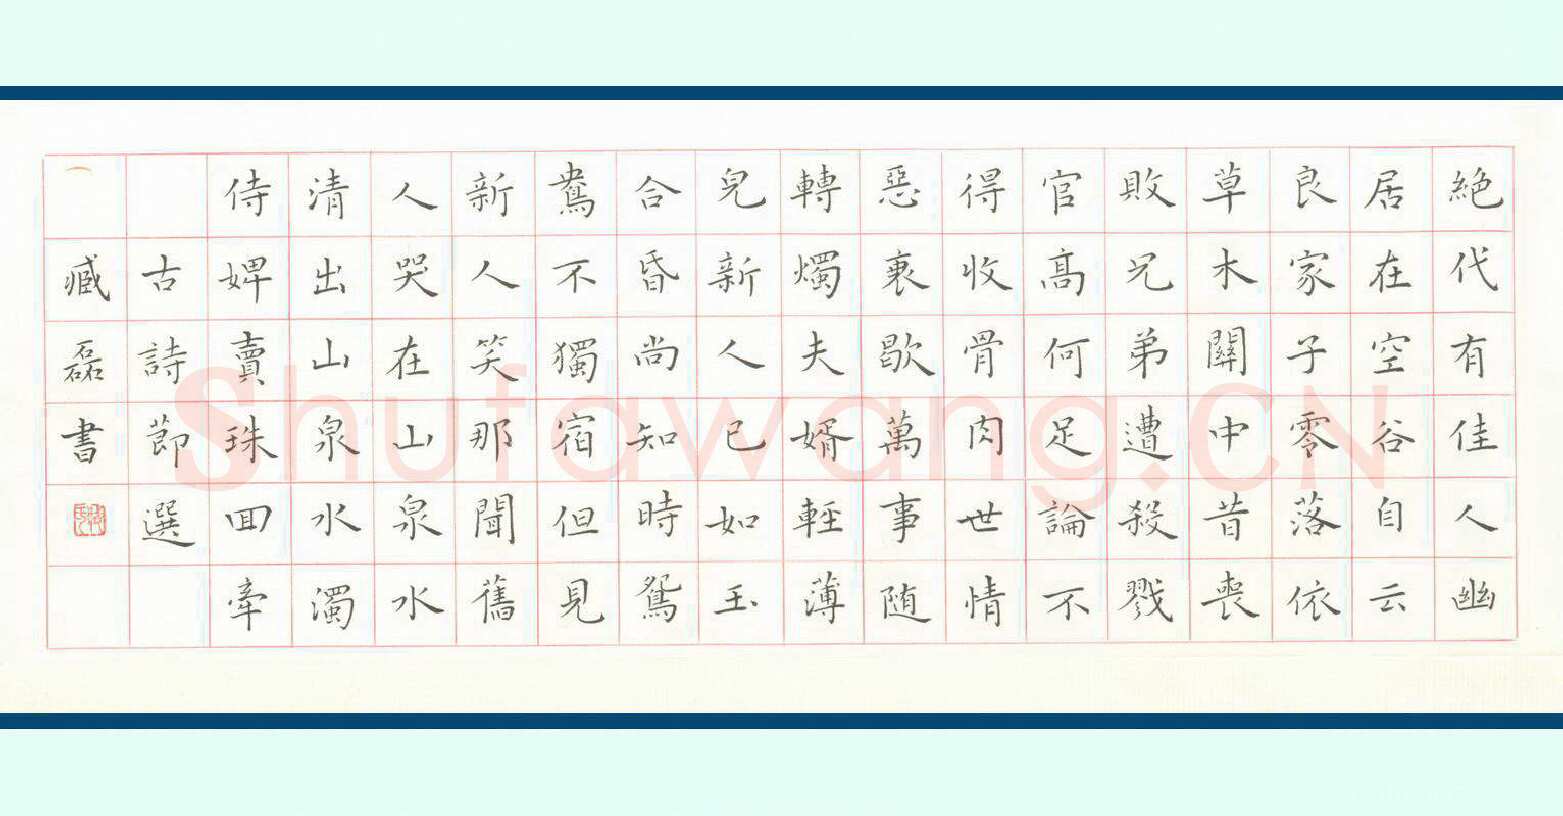 絶代有佳人幽
居在空谷自云
良家子零落依
草木關中昔喪
敗兄弟遭殺戮
官高何足論不
得收骨肉世情
惡衰歇萬事随
轉燭夫婿輕薄
兒新人已如玉
合昏尚知時鴛
鴦不獨宿但見
新人笑那聞舊
人哭在山泉水
清出山泉水濁
侍婢賣珠回牽
古詩節選
臧磊書
Shufawang.CN